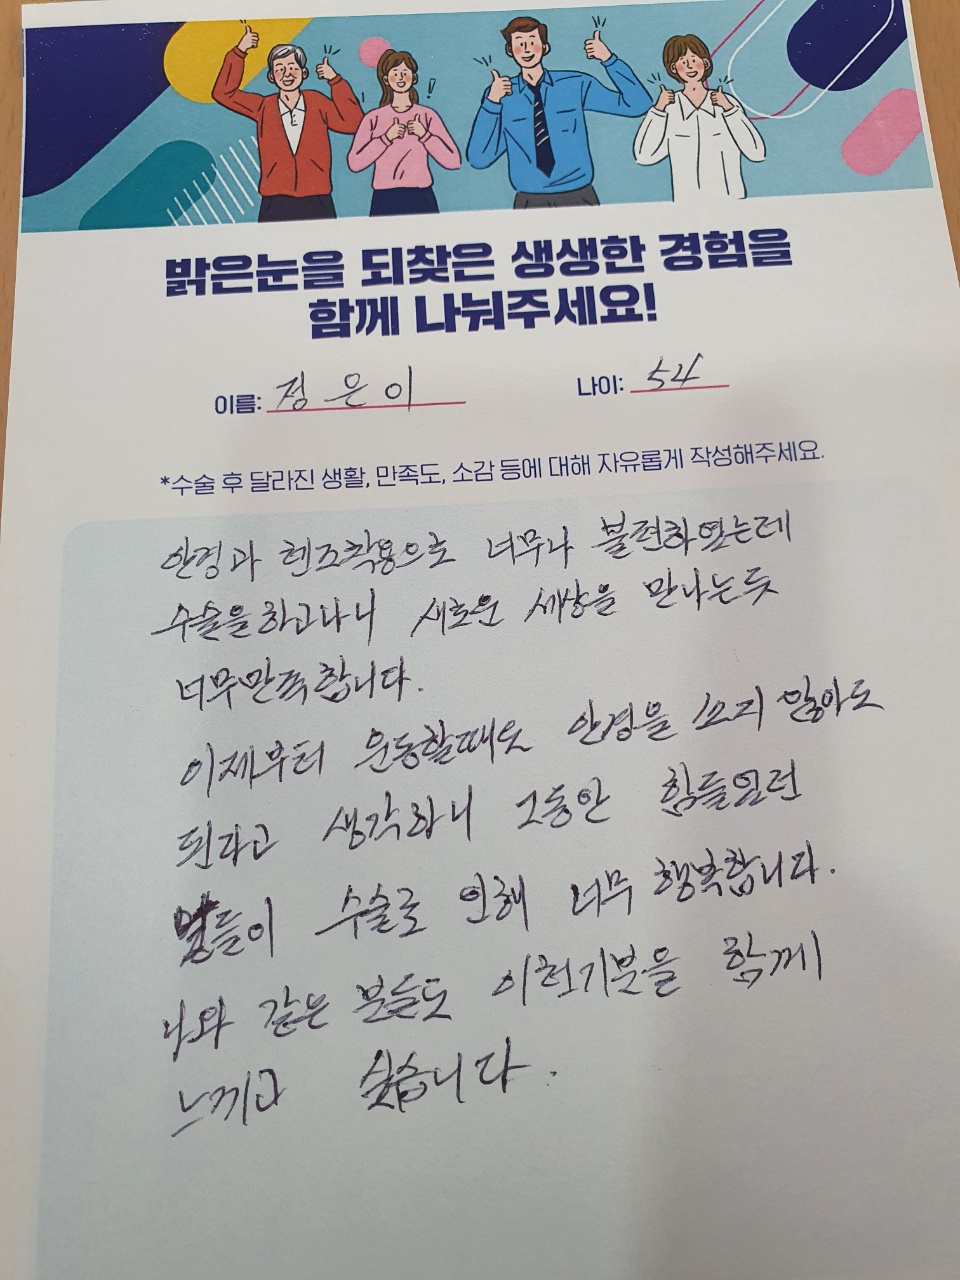 밝은눈을 되찾은 생생한 경험을
함께 나눠주세요!
이름: 정은이 나이: 54
*수술 후 달라진 생활, 만족도, 소감 등에 대해 자유롭게 작성해주세요.
안경과 렌즈착용으로 너무나 불편하였는데
수술을하고나니 새로운 세상을 만나는듯
너무만족합니다.
이제부터 운동할때도 안경을 쓰지 않아도
된다고 생각하니 그동안 힘들었던
날들이 수술로 인해 너무 행복합니다.
나와 같은 분들도 이런기분을 함께
느끼고 싶습니다.